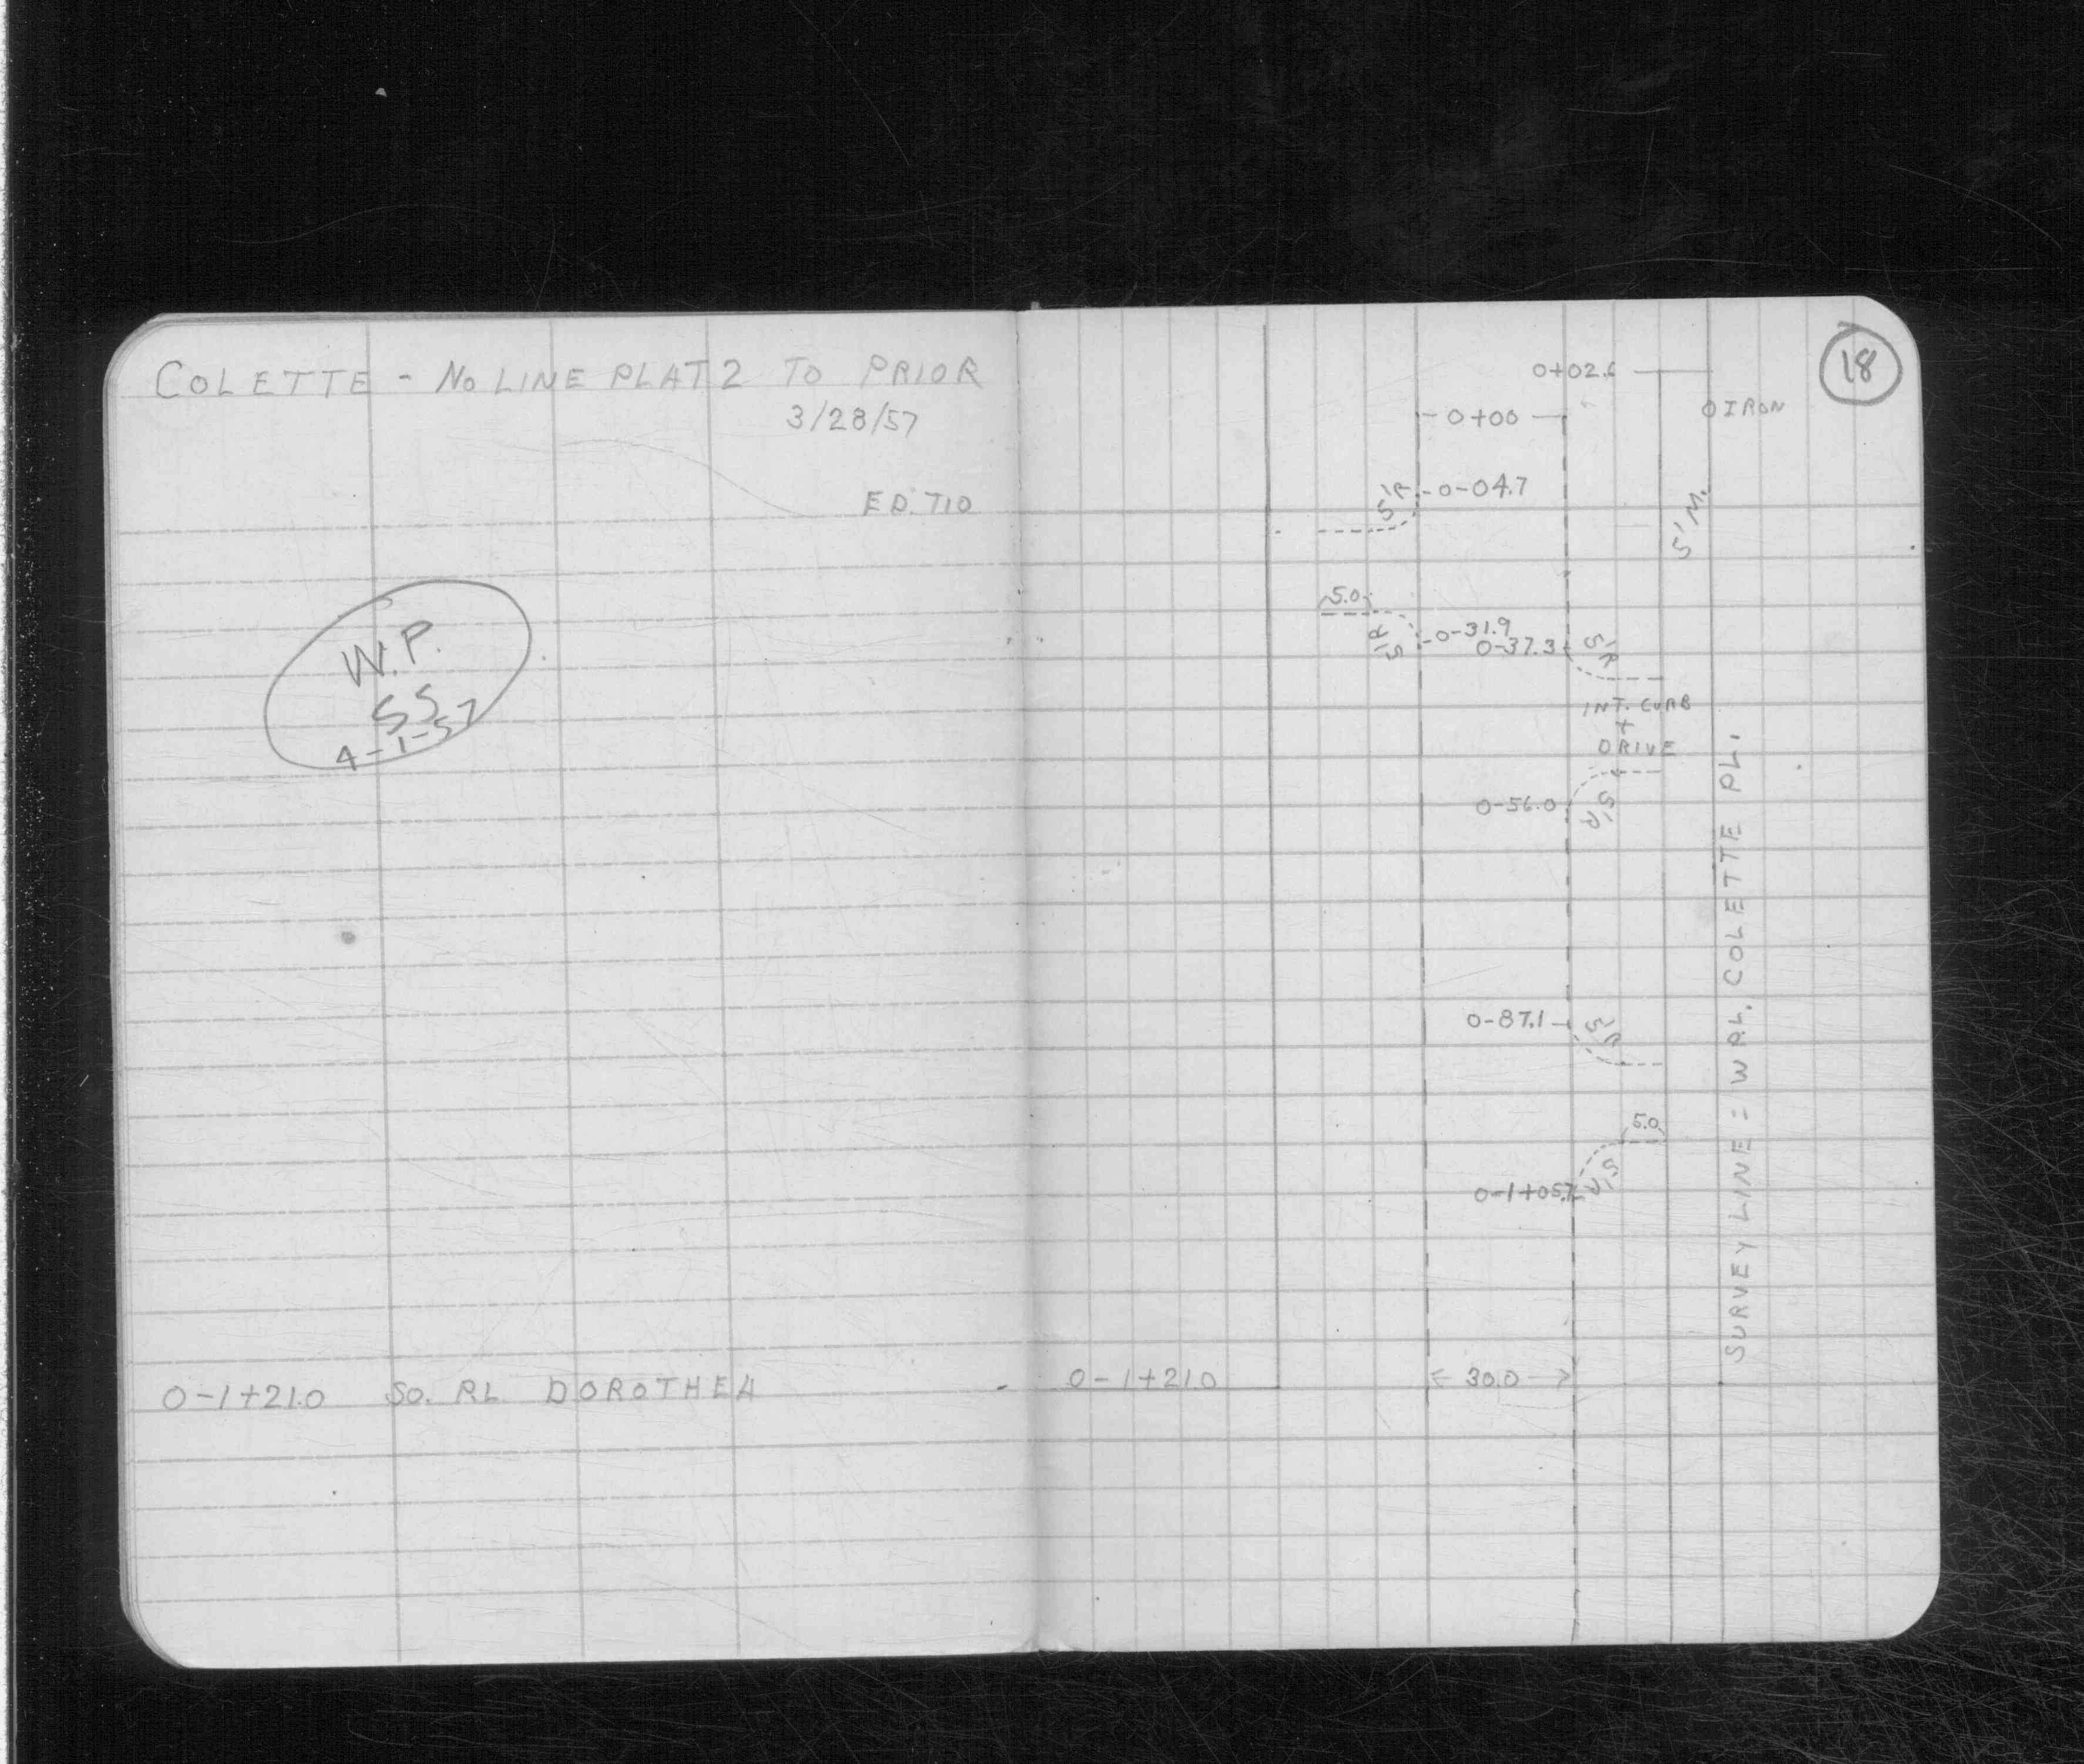 COLETTE - NO LINE PLAT 2 TO PRIOR
3/28/57
ED. 710
W.P.
SS
4-1-57
0-1+21.0 SO. P.L. DOROTHEA
18
0+02.6
0+00
O IRON
5'R
0-04.7
5' M.
5.0
5'R
0-31.9
0-37.3
5'R
INT. CURB
+
DRIVE
0-56.0
5'R
0-87.1
5'R
5.0
0-1+05.7
5'R
SURVEY LINE = W P.L. COLETTE PL.
0-1+21.0
30.0